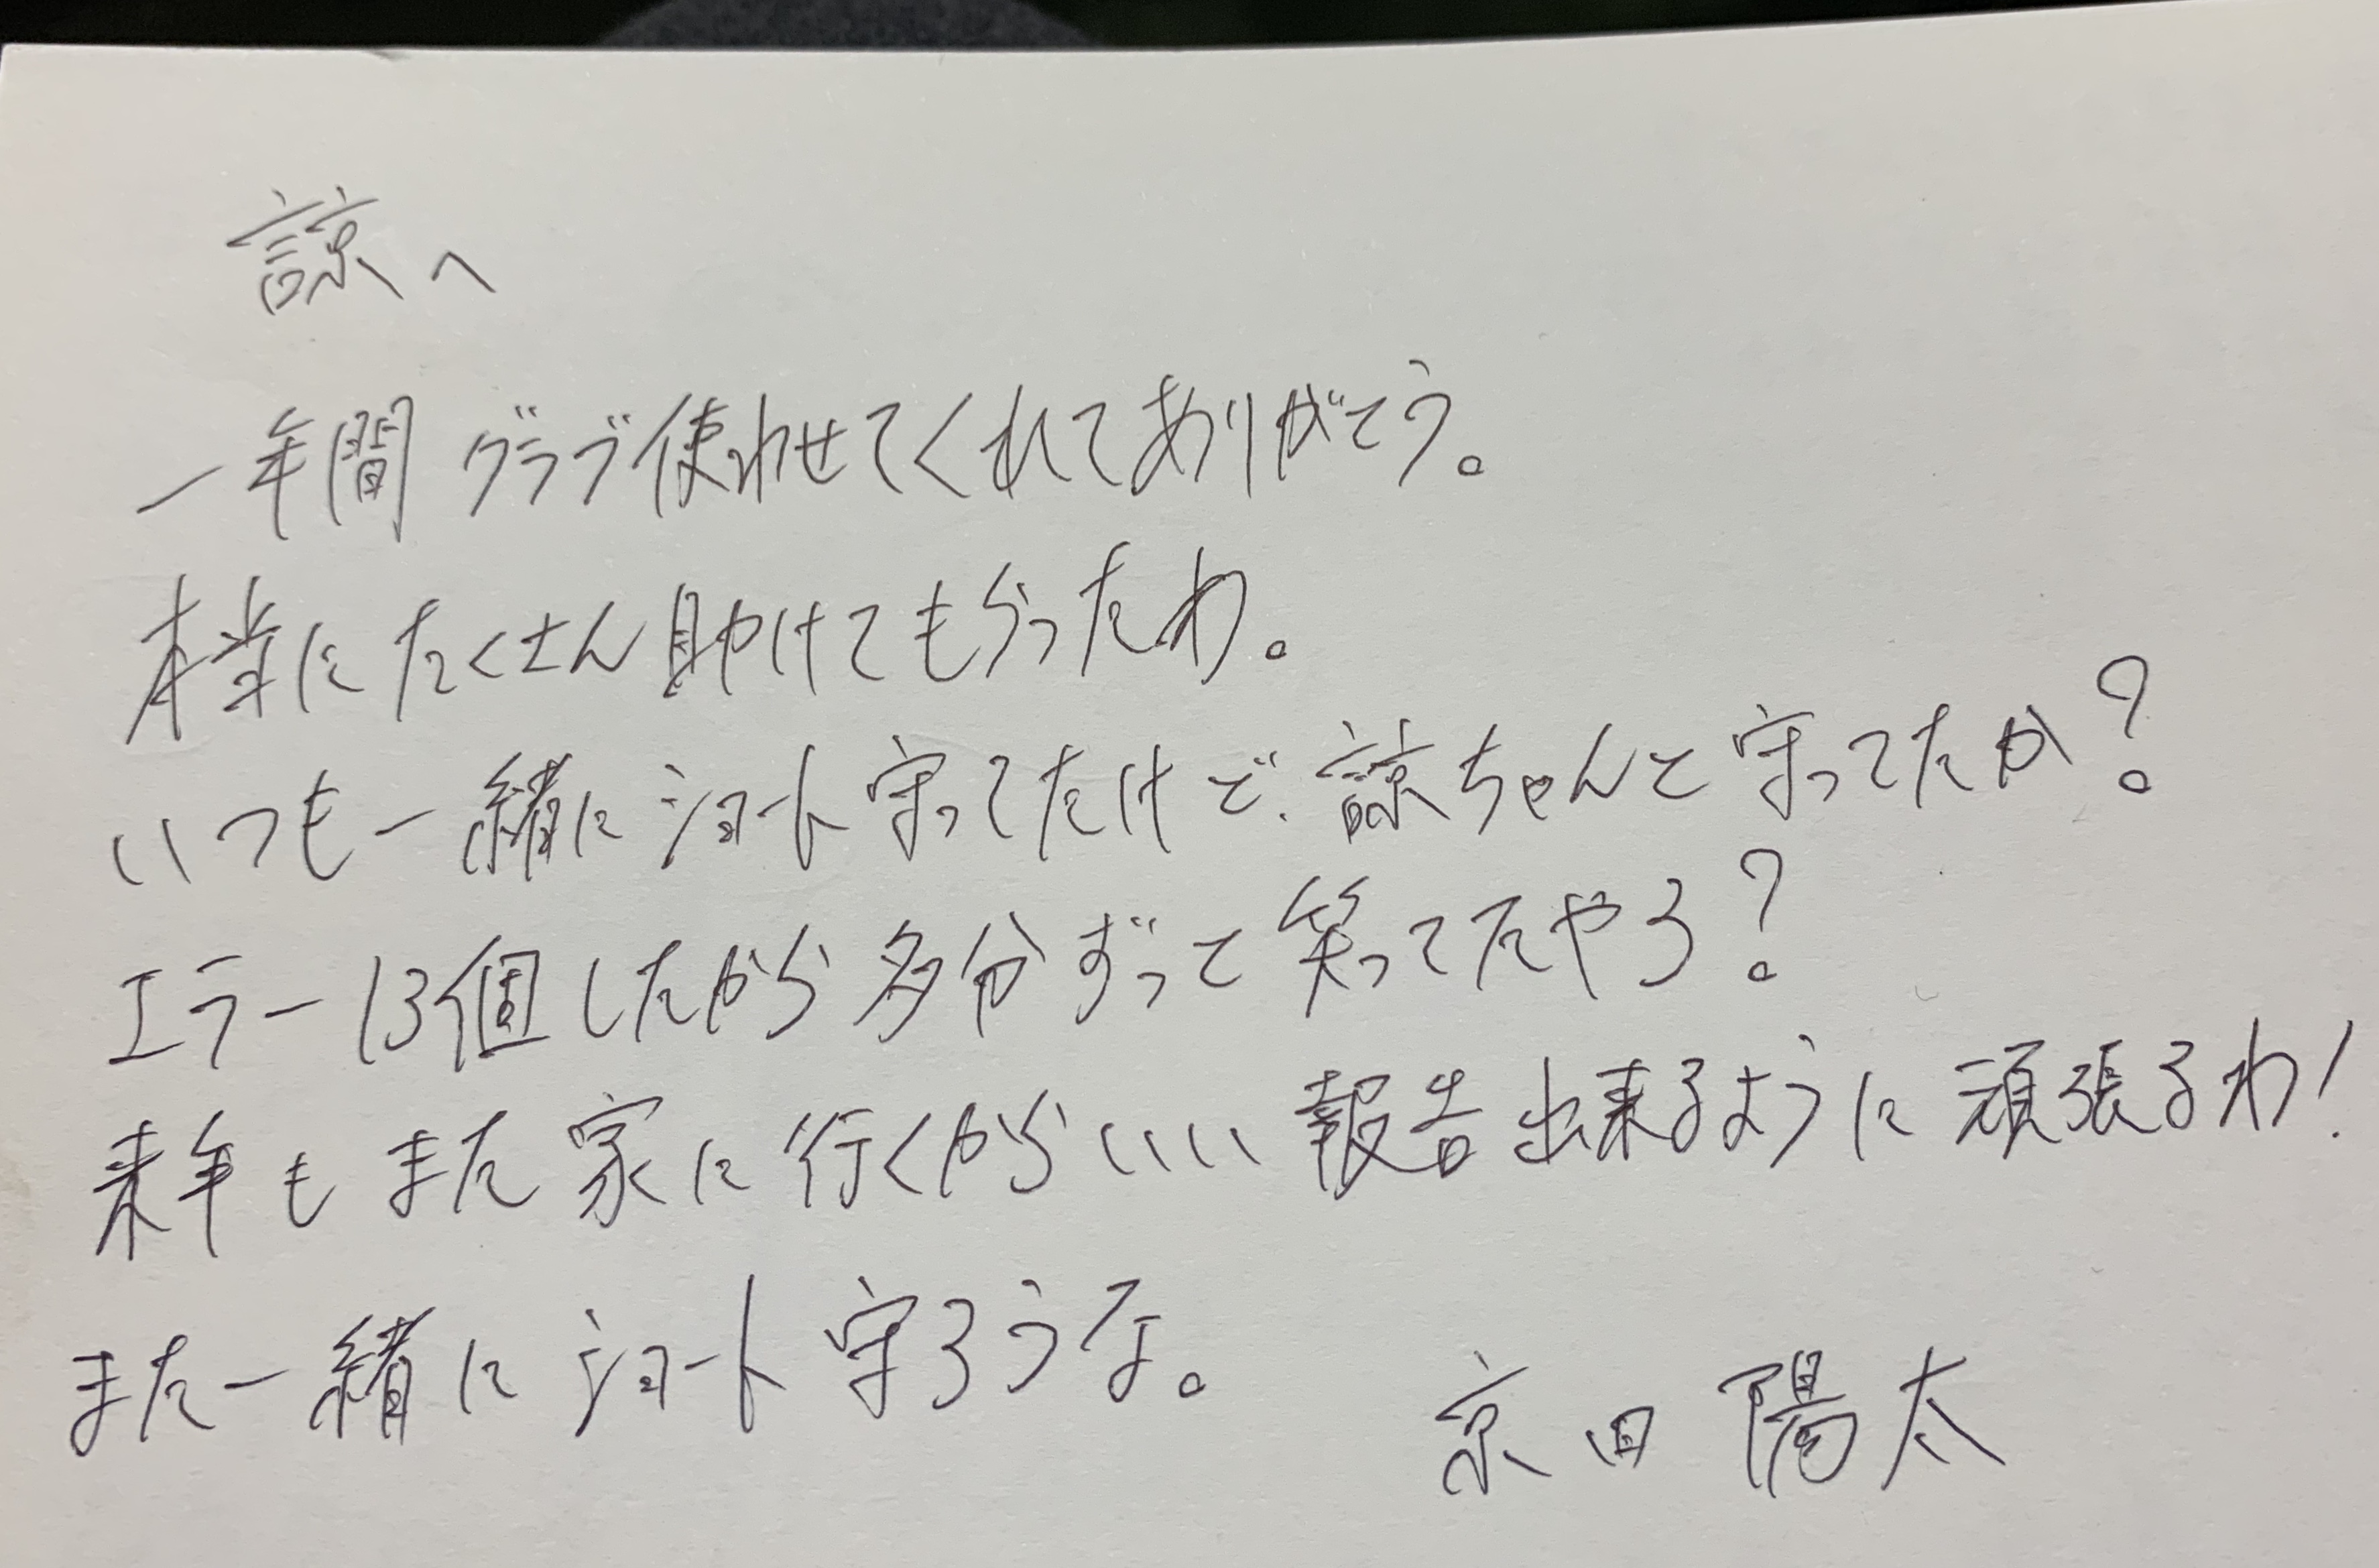 諒へ
一年間グラブ使わせてくれてありがとう。
本当にたくさん助けてもらったわ。
いつも一緒にショート守ってたけど、諒ちゃんと守ってたか?
エラー13個したから多分ずっと笑ってたやろ?
来年もまた家に行くからいい報告出来るように頑張るわ!
また一緒にショート守ろうな。
京田陽太